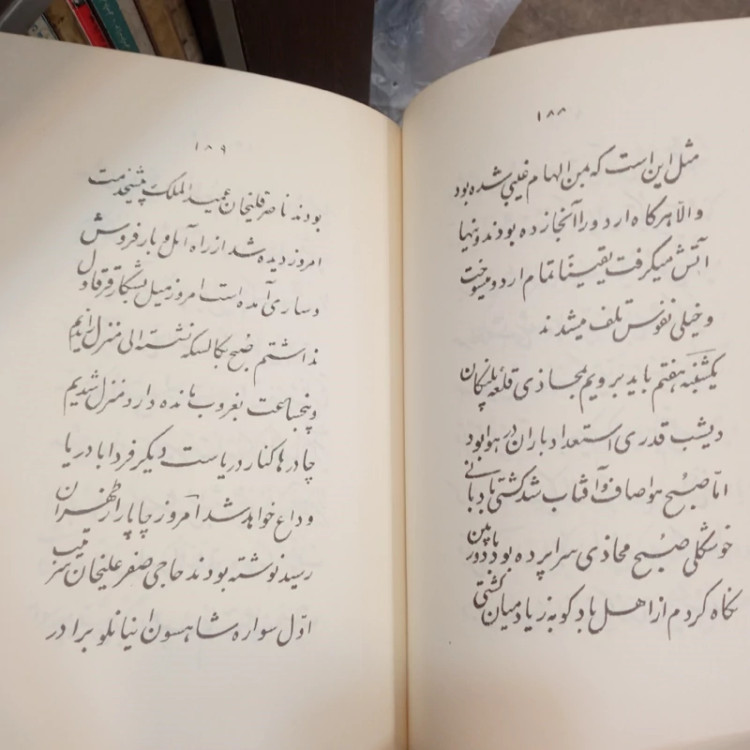 ۱۸۸
مثل این است که بمن الهام غیبی شده بود
والّا هر گاه اردو را آنجا زده بودند و نیها
آتش میگرفت یقیناً تمام اردو میسوخت
و خیلی نفوس تلف میشدند
یکشنبه هفتم باید برویم بمحاذی قلعه پلنگان
دیشب قدری استعداد باران در هوا بود
امّا صبح هوا صاف و آفتاب شد کشتی بادبانی
خوشگلی صبح محاذی سراپرده بود با دوربین
نگاه کردم از اهل بادکوبه زیاد میان کشتی
۱۸۹
بودند ناصرقلیخان عمید الملک پیشخدمت
امروز دیده شد از راه آمل و بارفروش
و ساری آمده است امروز میل بشکار قرقاول
نداشتم صبح بکالسکه نشسته الی منزل راندیم
و پنجساعت بغروب مانده وارد منزل شدیم
چادرها کنار دریاست دیگر فردا با دریا
وداع خواهد شد امروز چاپار از طهران
رسید نوشته بودند حاجی صفر علیخان سرتیپ
اوّل سواره شاهسون اینانلو برادر